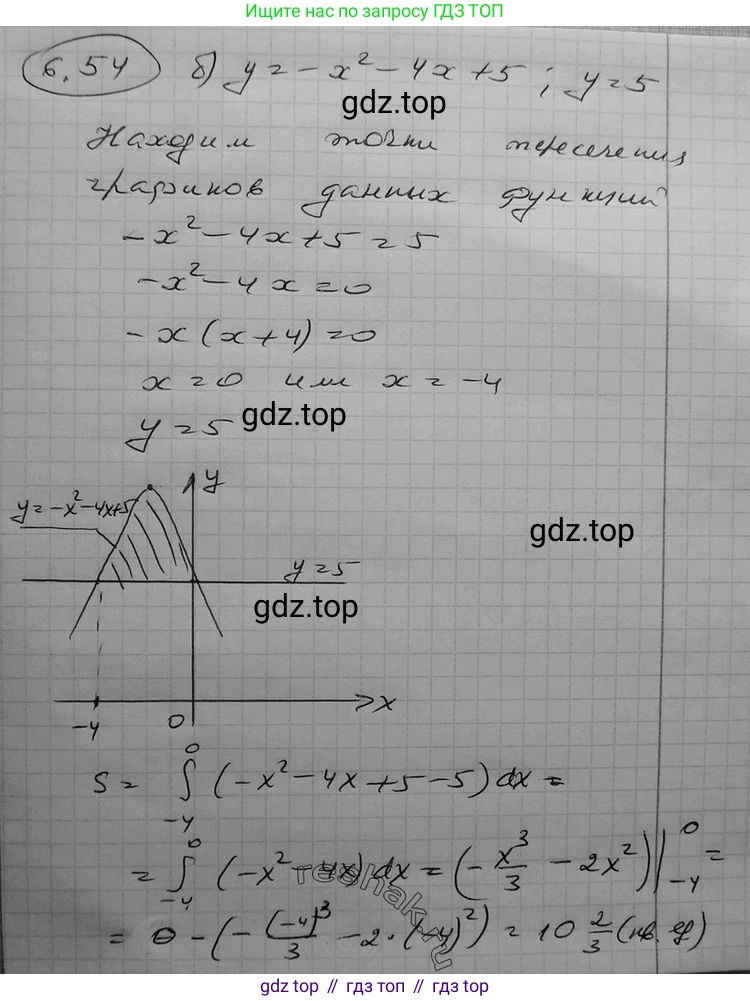 Ещё больше решебников по запросу ГДЗ ТОП
6.54 б) y = -x² - 4x + 5 ; y = 5
gdz.top
Находим точки пересечения
графиков данных функций
-x² - 4x + 5 = 5
-x² - 4x = 0
-x (x + 4) = 0
x = 0 или x = -4
y = 5
gdz.top
y
y = -x² - 4x + 5
gdz.top
y = 5
gdz.top
x
-4
0
S = ∫₋₄⁰ (-x² - 4x + 5 - 5) dx =
= ∫₋₄⁰ (-x² - 4x) dx = (-x³/3 - 2x²) |₋₄⁰ =
reshak.ru
= 0 - (-(-4)³/3 - 2 · (-4)²) = 10 2/3 (кв. ед)
gdz top // гдз топ // gdz.top // гдз.топ